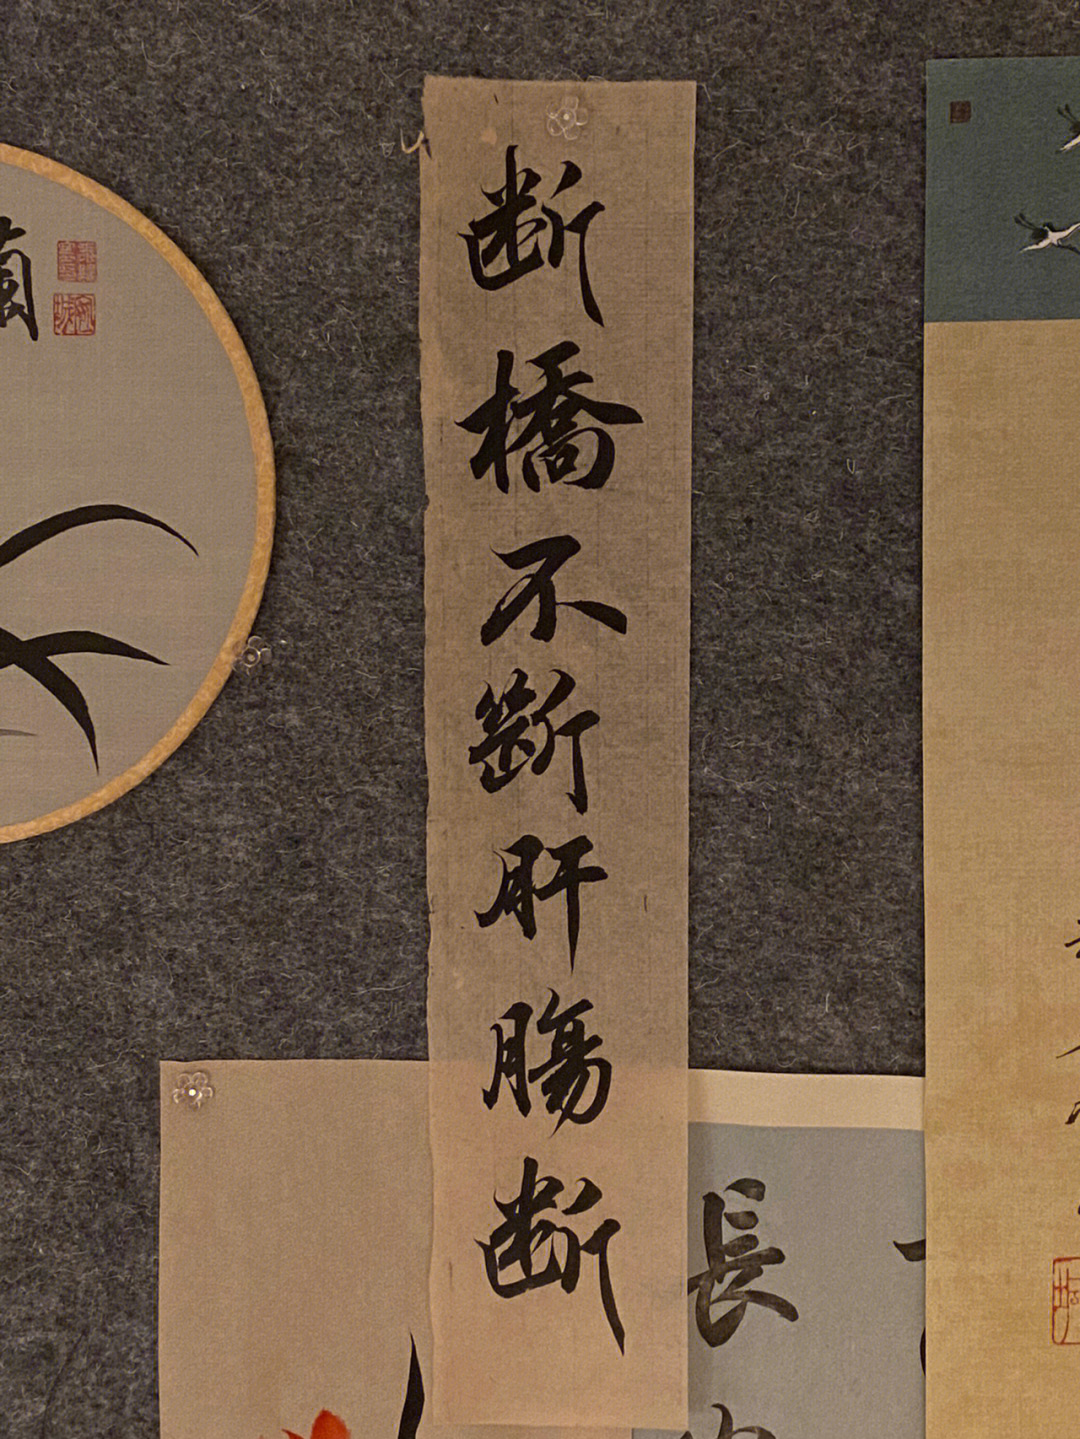 断橋不斷肝腸断
蘭
長